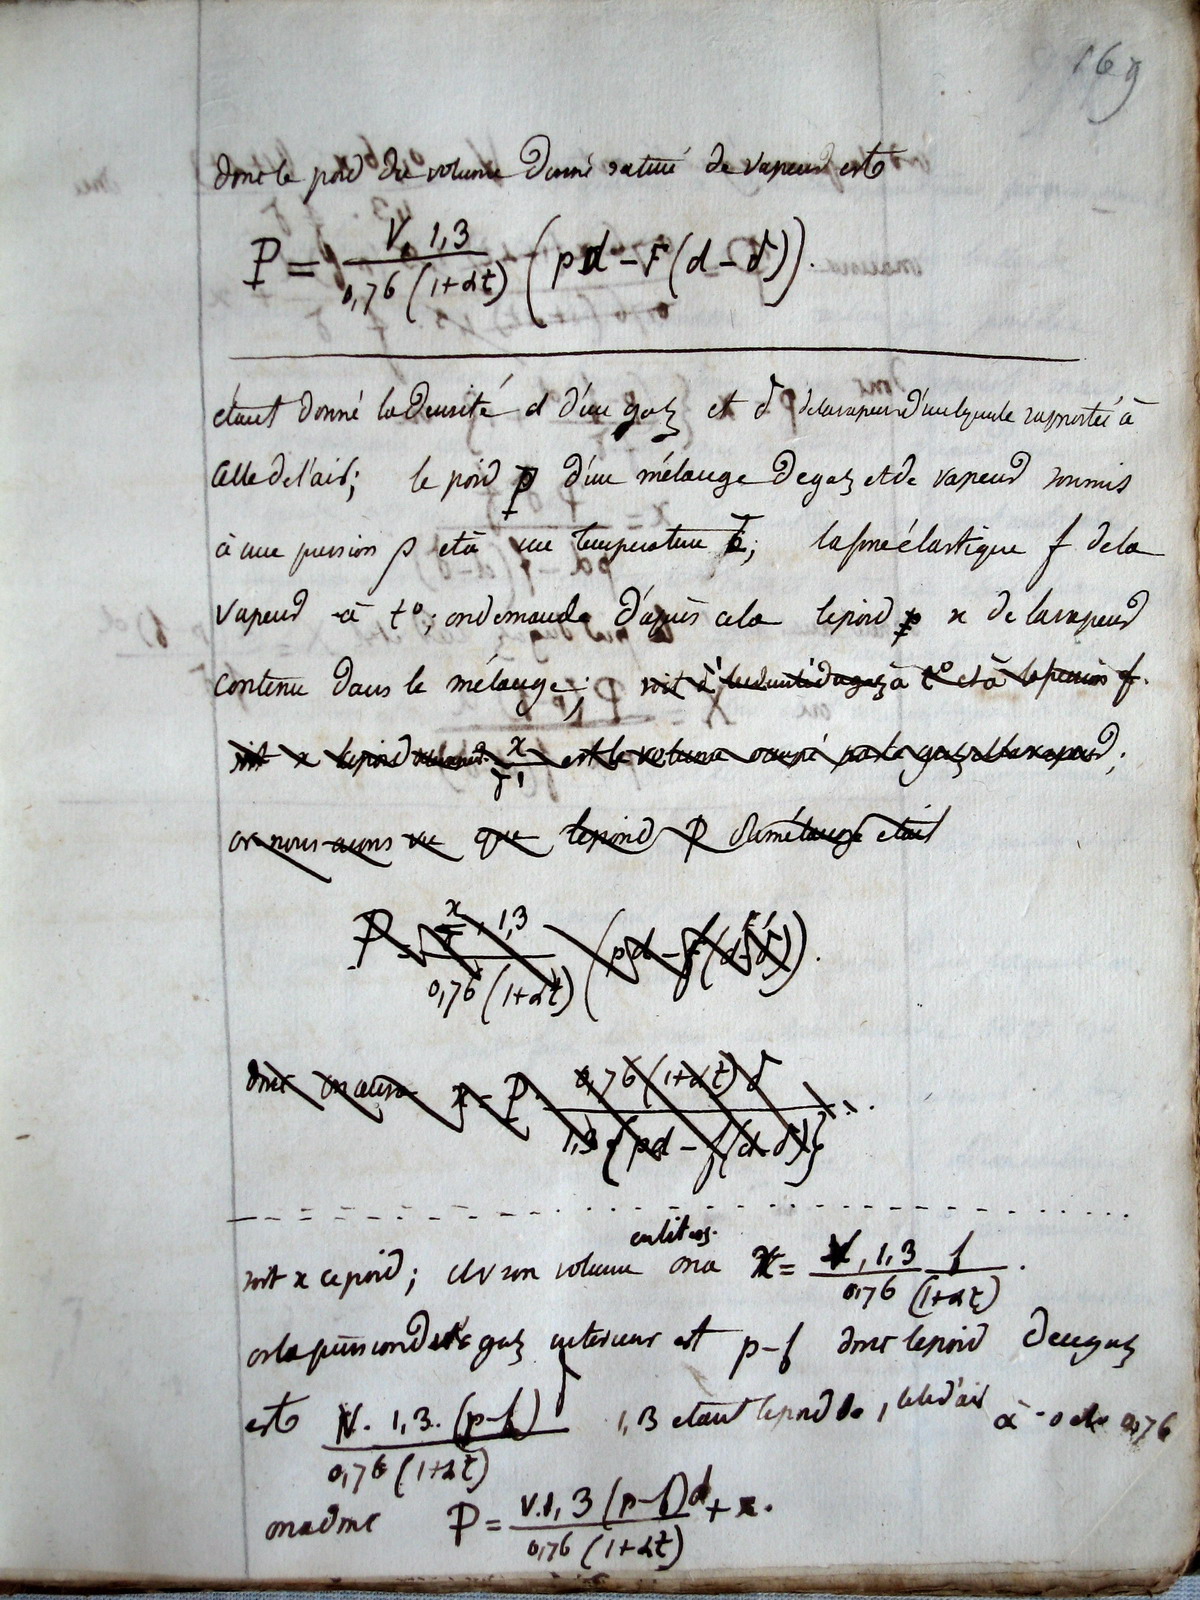 169
donc le poid du volume donné saturé de vapeur est
P = V. 1,3 / 0,76 (1+αt) (pd – F(d – δ)).
étant donné la densité d d'un gaz et δ de la vapeur d'un liquide rapportée à
celle de l'air; le poid P d'un mélange de gaz et de vapeur soumis
à une pression p et à une température t; la force élastique f de la
vapeur à t°; on demande d'après cela le poid x de la vapeur
contenue dans le mélange; soit d' la densité du gaz à t° et à la pression f.
soit x le poid x/δ' est le volume occupé par le gaz et la vapeur;
or nous avons vu que le poid P du mélange etait
P = x/δ' . 1,3 / 0,76 (1+αt) (pd – f(d–δ')).
donc on aura x = P . 0,76 (1+αt) δ / 1,3 {pd – f(d–δ)}
soit x ce poid; et v son volume en litres on a x = V, 1,3 f / 0,76 (1+αt) .
or la pression du gaz interieur est p–f donc le poid de ce gaz
est V. 1,3. (p–f) / 0,76 (1+αt) 1,3 etant le poid de 1 litre d'air à 0 et a 0,76
on a donc P = V.1,3 (p–f)d / 0,76 (1+αt) + x.